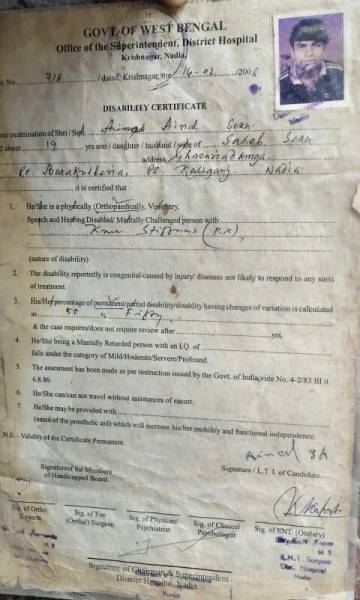 GOVT. OF WEST BENGAL
Office of the Superintendent, District Hospital
Krishnagar, Nadia.
No 718 / dated, Krishnagar, the 16-01 /2008
DISABILITY CERTIFICATE
examination of Shri / Smt.
about 19 yrs son / daughter / husband / wife of Sahab Sekh
address
Po. Po. Kaliganj Nadia
it is certified that
1. He/She is a physically (Orthopaedically, Visionary,
Speech and Hearing Disabled/ Mentally Challenged person with
Knee Stiffness (Rt)
(nature of disability)
2. The disability reportedly is congenital/caused by injury/ diseases not likely to respond to any sorts
of treatment.
3. His/Her percentage of permanent/partial disability/disablity having changes of variation is calculated
as 50 % Fifty
& the case requires/does not require review after yrs,
4. He/She being a Mentally Retarded person with an I.Q. of
falls under the category of Mild/Moderate/Servere/Profound.
5. The assessment has been made as per instruction issued by the Govt. of India, vide No. 4-2/83 III it
6.8.86.
6. He/She can/can not travel without assistances of escort.
7. He/She may be provided with
(name of the prosthetic aid) which will increase his/her mobility and functional independence.
N.B. - Validity of the Certificate Permanent.
Signature / L.T. I. of Candidate.
Signatureof the Members
of Handicapped Board.
Sig. of Ortho. Surgeon
Sig. of Eye (Opthal) Surgeon
Sig. of Physican/ Psychiatrist
Sig. of Clinical Psychologist
Sig. of ENT. (Otolary)
M S
E.N.T. Surgeon
Dist. Hospital
Nadia
Signature of Chairman & Superintendent
District Hospital, Nadia